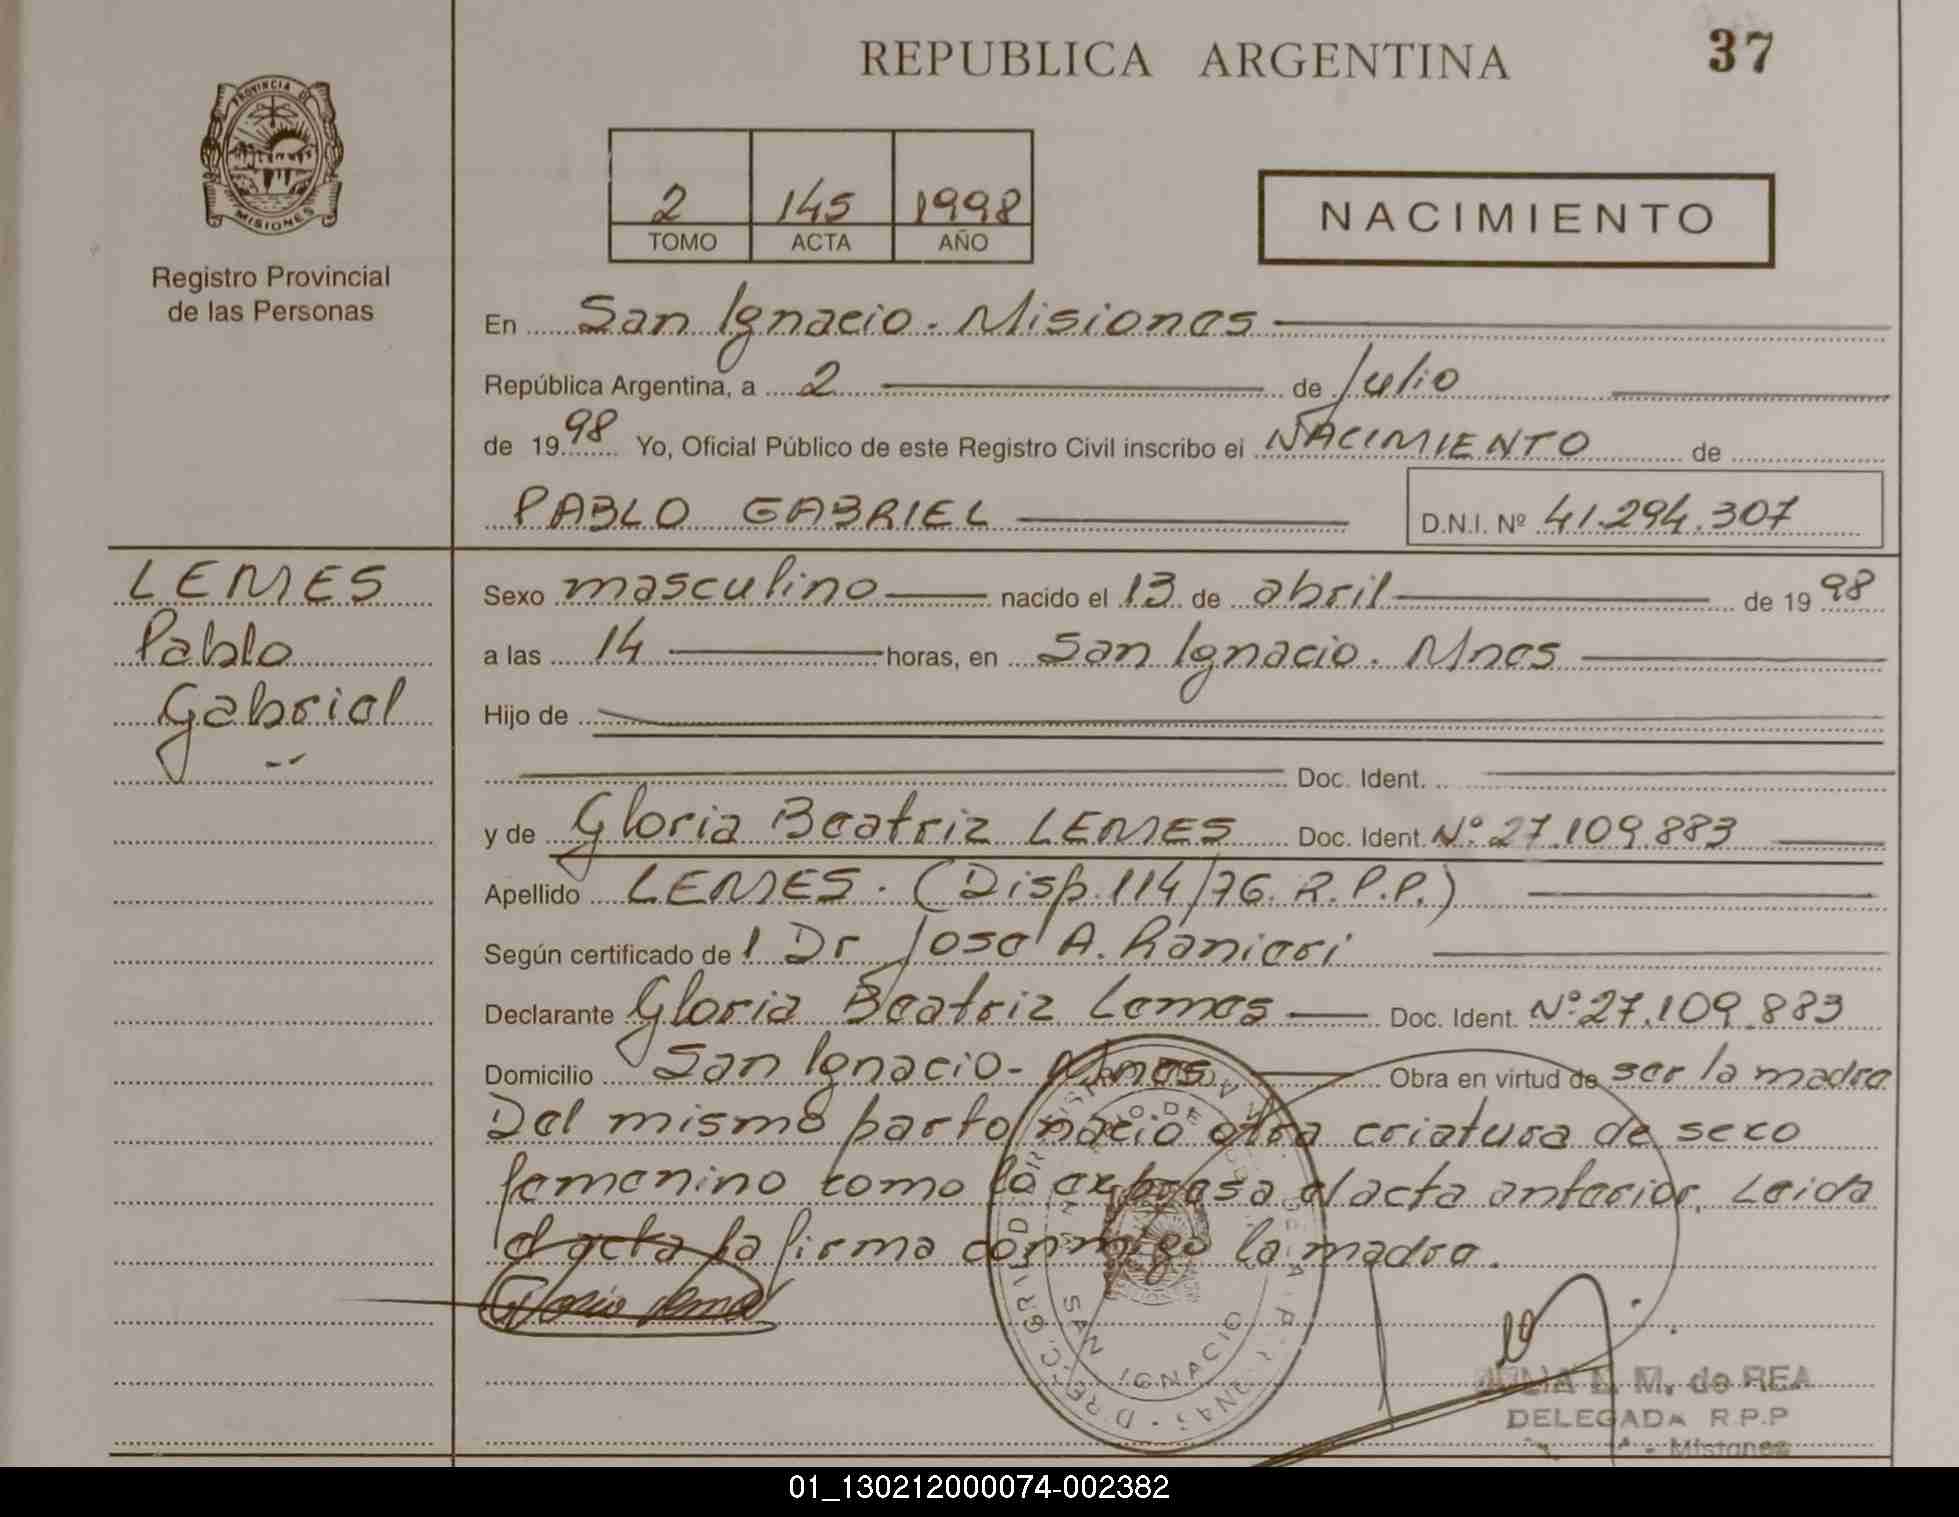 REPUBLICA ARGENTINA
37
PROVINCIA DE
MISIONES
Registro Provincial
de las Personas
2 145 1998
TOMO ACTA AÑO
NACIMIENTO
En San Ignacio. Misiones
República Argentina, a 2 de Julio
de 1998 Yo, Oficial Público de este Registro Civil inscribo el NACIMIENTO de
PABLO GABRIEL D.N.I. Nº 41.294.307
LEMES
Pablo
Gabriel
Sexo masculino nacido el 13 de abril de 1998
a las 14 horas, en San Ignacio. Mnes
Hijo de
Doc. Ident.
y de Gloria Beatriz LEMES Doc. Ident. Nº 27.109.883
Apellido LEMES. (Disp. 114/76. R.P.P.)
Según certificado de l Dr José A. Ranieri
Declarante Gloria Beatriz Lemes Doc. Ident. Nº 27.109.883
Domicilio San Ignacio- Mnes Obra en virtud de ser la madre
Del mismo parto nació otra criatura de sexo
femenino como lo expresa el acta anterior. Leida
el acta la firma conmigo la madre.
SAN IGNACIO
L. M. de REA
DELEGADA R.P.P
Misiones
01_130212000074-002382